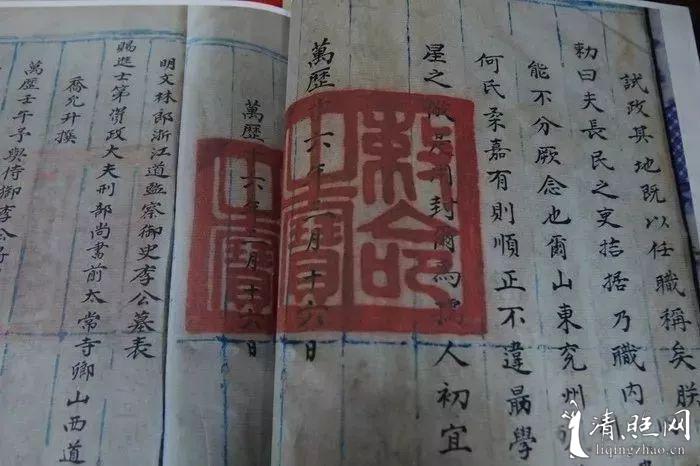 試政其地既以任職稱矣朕
勅曰夫長民之吏拮据乃職内
能不分厥念也爾山東兖州
何氏柔嘉有則順正不違勗學
星之 是用封爾為孺人初宜
萬歷十六年二月十六日
敕命之寶
萬歷十六年二月十六日
之寶
明文林郎浙江道監察御史李公墓表
賜進士第資政大夫刑部尚書前太常寺卿山西道
喬允升撰
萬歷壬午予與侍御李公
清照网
liqingzhao.cn